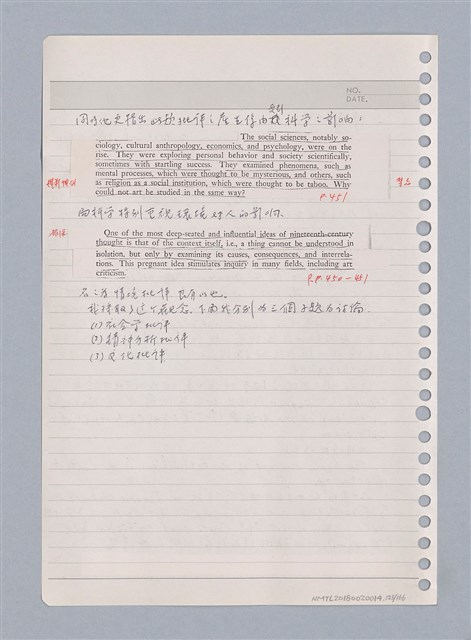 NO.
DATE.
同时他更指出此類批評之產生係由於科学之影响：
The social sciences, notably so-
ciology, cultural anthropology, economics, and psychology, were on the
rise. They were exploring personal behavior and society scientifically,
sometimes with startling success. They examined phenomena, such as
mental processes, which were thought to be mysterious, and others, such
as religion as a social institution, which were thought to be taboo. Why
could not art be studied in the same way?
P.451
而科学特别重視環境对人的影响。
One of the most deep-seated and influential ideas of nineteenth-century
thought is that of the context itself, i.e., a thing cannot be understood in
isolation, but only by examining its causes, consequences, and interrela-
tions. This pregnant idea stimulates inquiry in many fields, including art
criticism.
P.P.450-451
名之為情境批評 良有以也。
下面就分别為三個子題為討論
(1) 社会学批評
(2) 精神分析批評
(3) 文化批評
HMTL20180020014